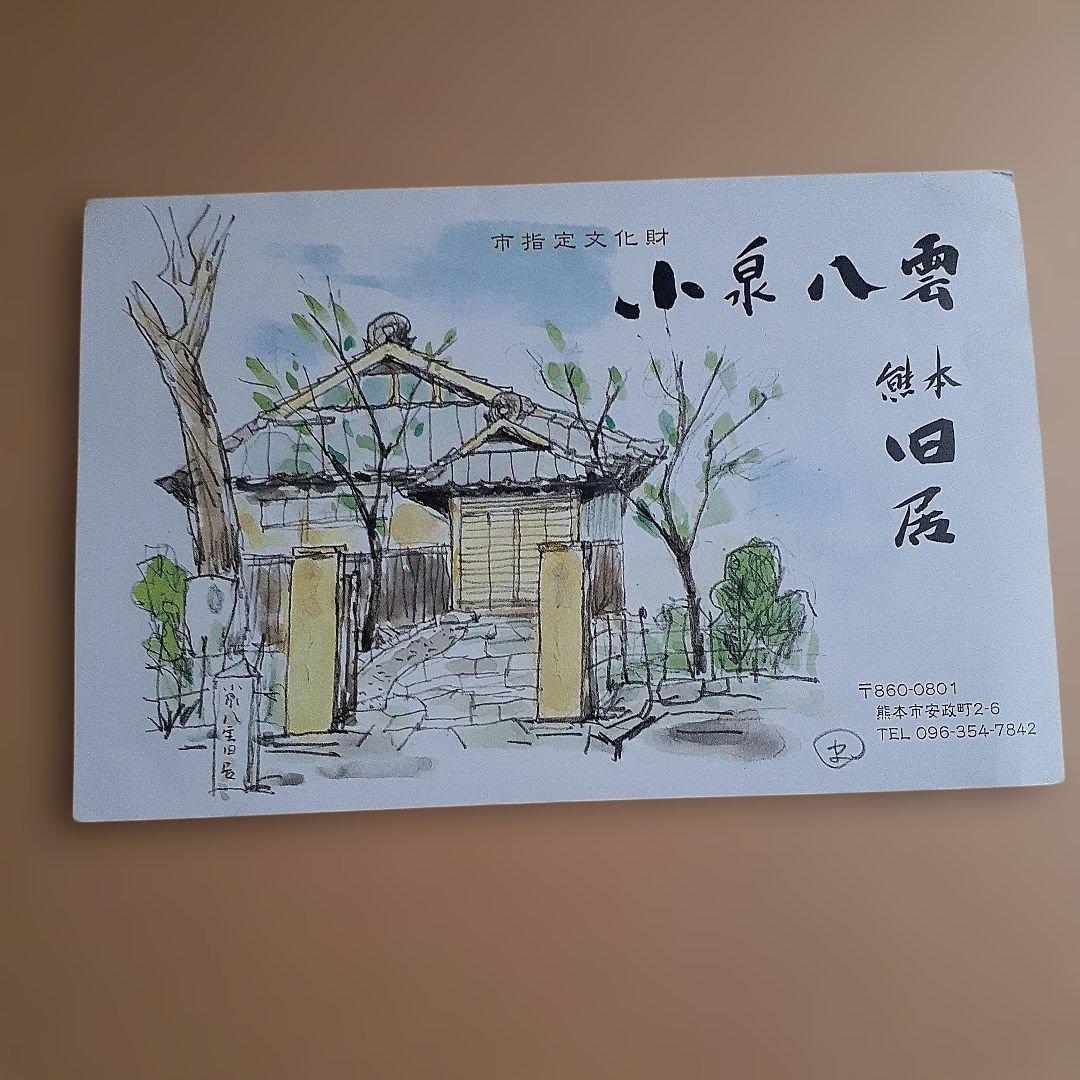 市指定文化財
小泉八雲
熊本
旧
居
〒860-0801
熊本市安政町2-6
TEL 096-354-7842
小泉八雲旧居